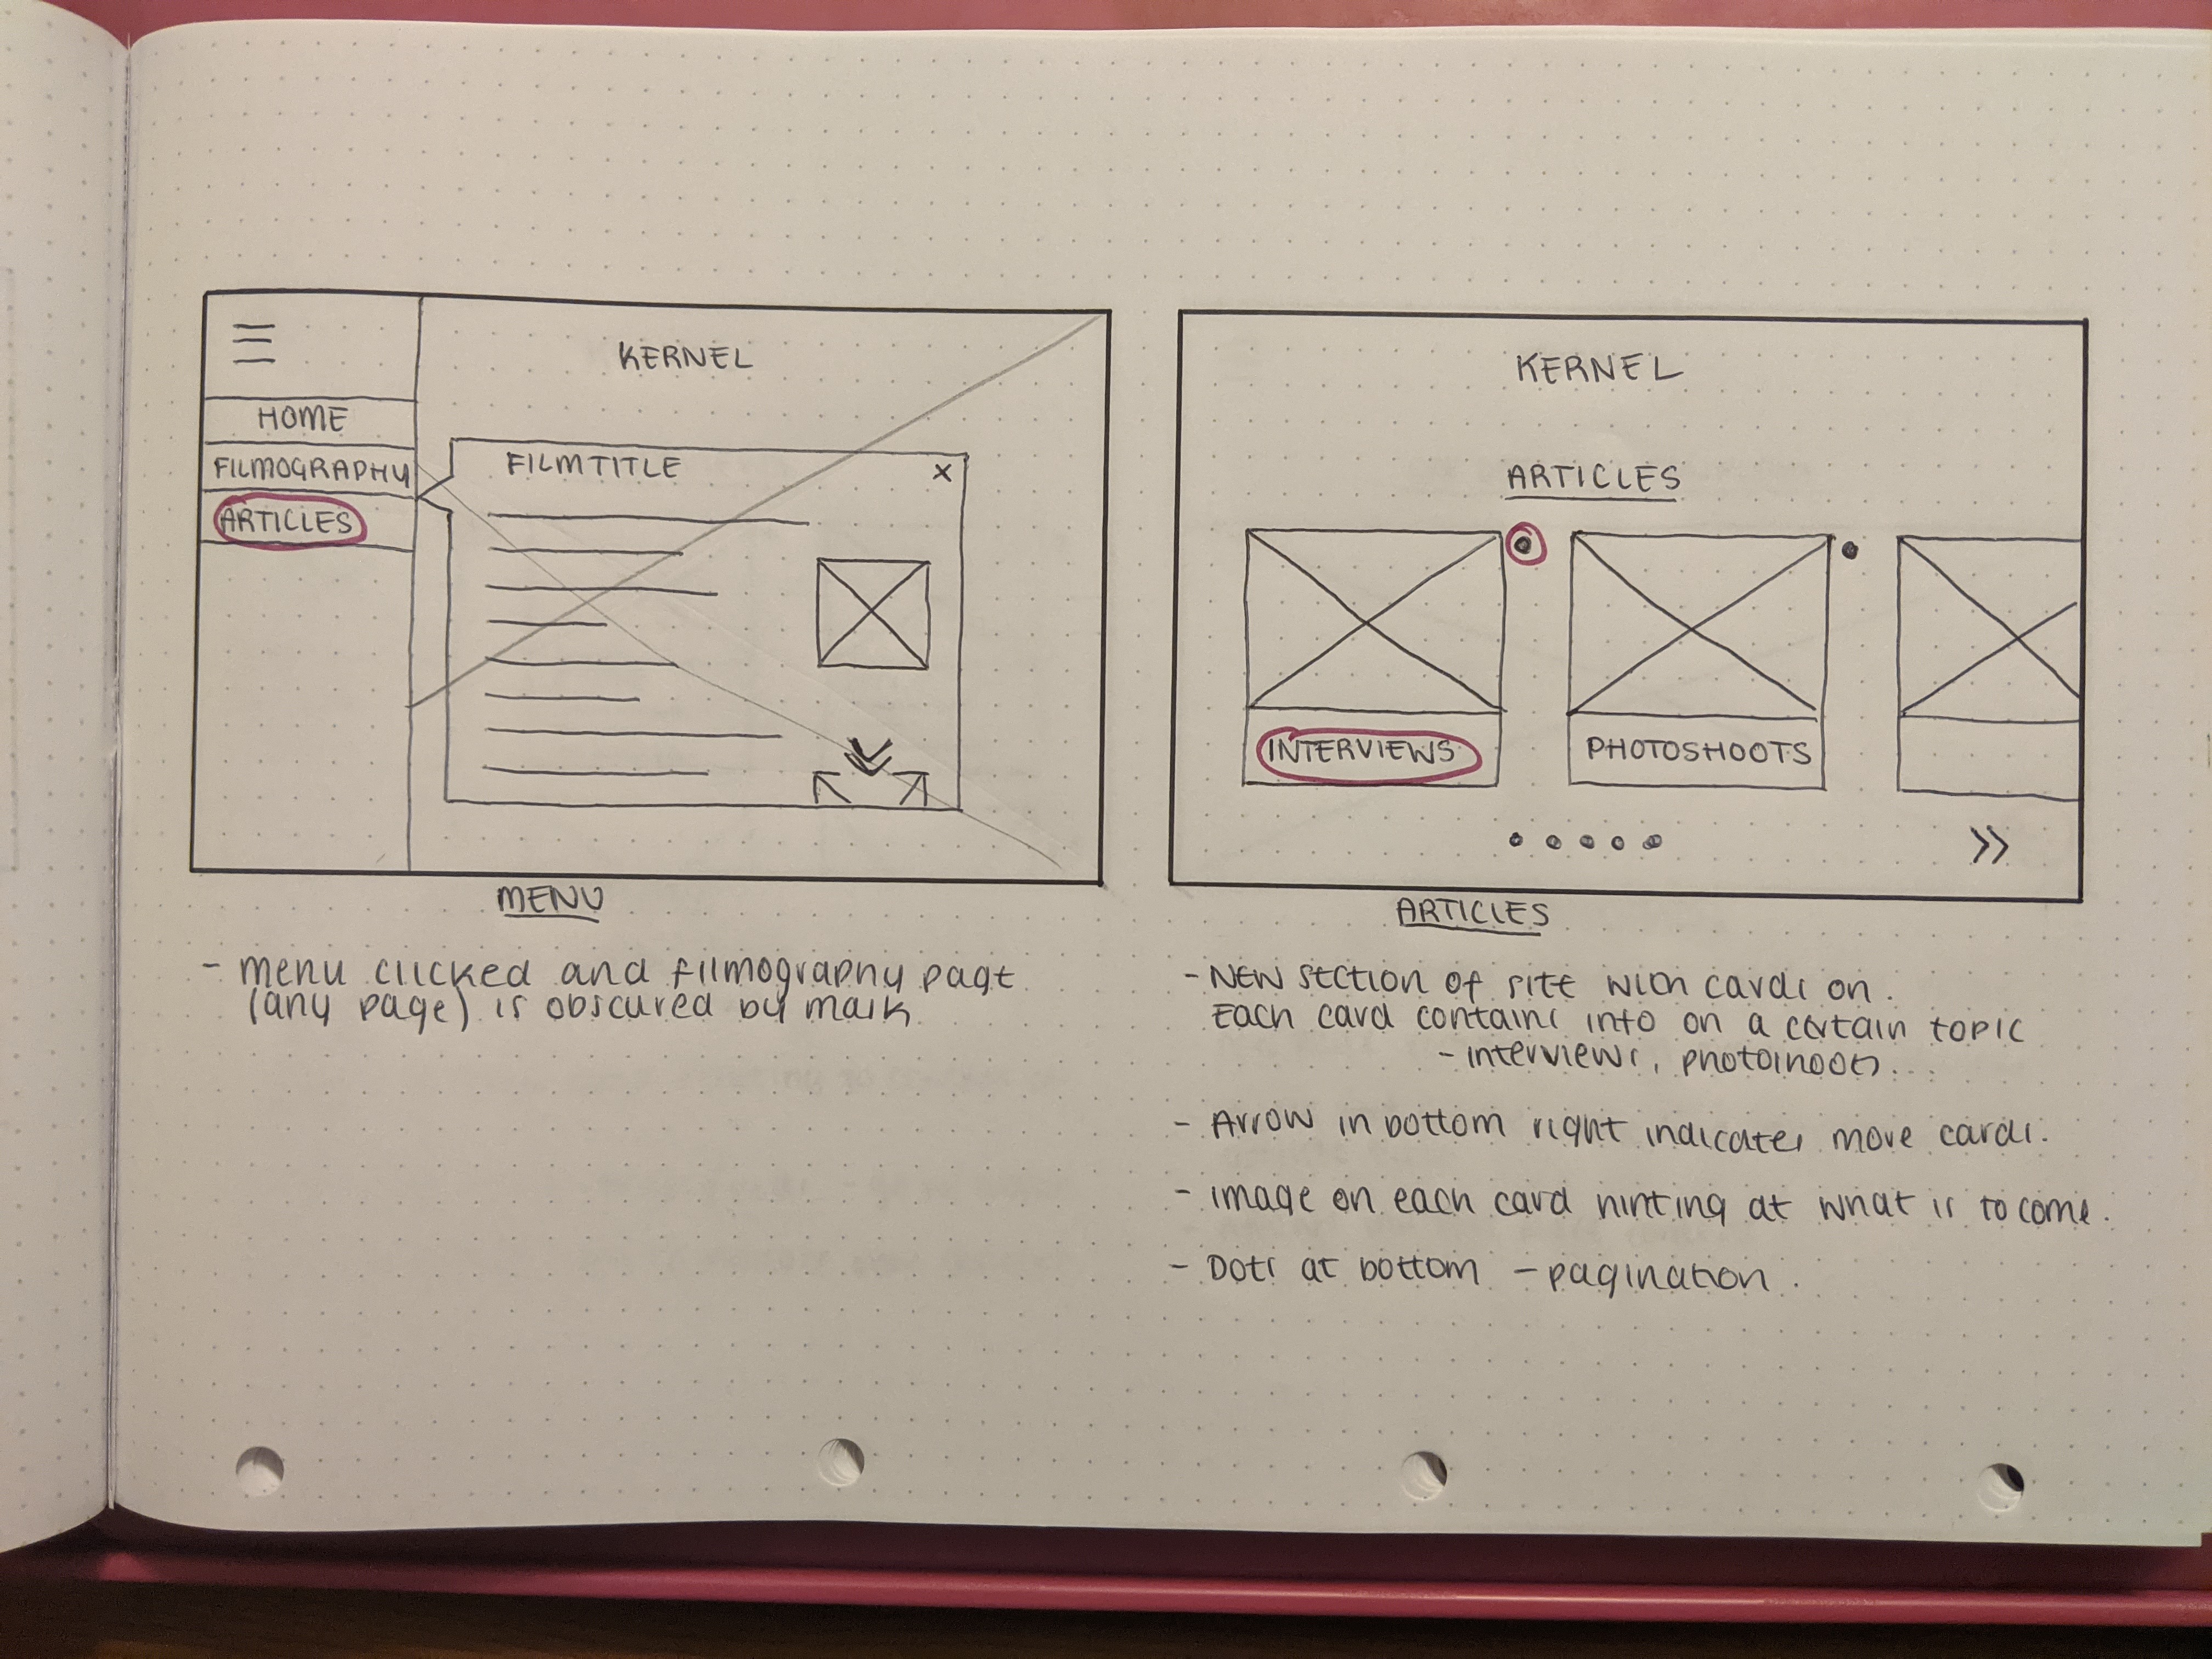 KERNEL
HOME
FILMOGRAPHY
ARTICLES
FILMTITLE
X
MENU
- menu clicked and filmography page
(any page) is obscured by mask
KERNEL
ARTICLES
INTERVIEWS
PHOTOSHOOTS
ARTICLES
- New section of site with cards on.
Each card contains info on a certain topic
- interviews, photoshoots...
- Arrow in bottom right indicates move cards.
- image on each card hinting at what is to come.
- Dots at bottom - pagination.